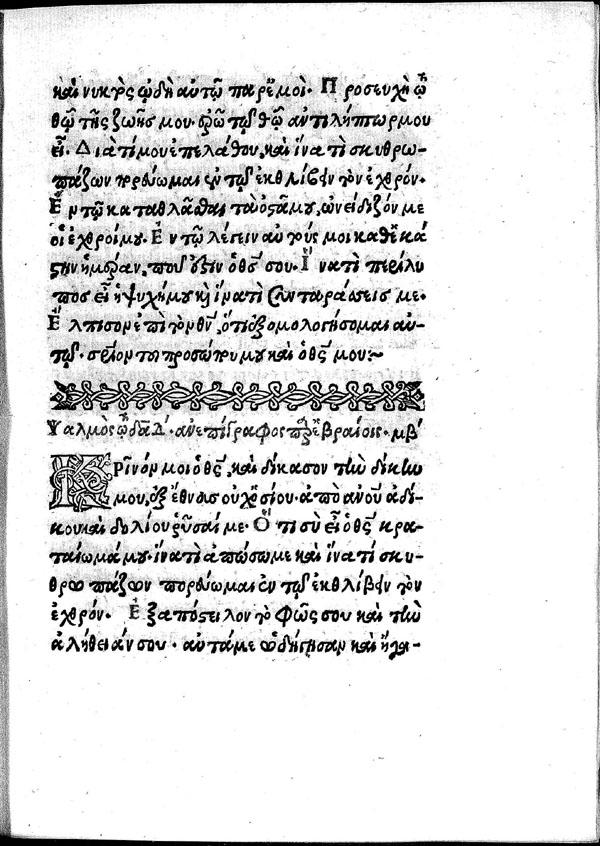 καὶ νυκτὸς ᾠδὴ αὐτῷ παρ' ἐμοί. Προσευχὴ τῷ
θῷ τῆς ζωῆς μου. ἐρῶ τῷ θῷ ἀντιλήπτωρ μου
εἶ. Διατί μου ἐπελάθου, καὶ ἵνα τί σκυθρω-
πάζων πορεύομαι ἐν τῷ ἐκθλίβειν τὸν ἐχθρόν.
Ἐν τῷ καταθλᾶσθαι τὰ ὀστᾶ μου, ὠνείδιζόν με
οἱ ἐχθροί μου. Ἐν τῷ λέγειν αὐτούς μοι καθ' ἑκά
στην ἡμέραν, ποῦ ἐστιν ὁ θς σου. Ἵνα τί περίλυ
πος εἶ ἡ ψυχή μου καὶ ἵνα τί συνταράσσεις με.
Ἔλπισον ἐπὶ τὸν θν, ὅτι ἐξομολογήσομαι αὐ-
τῷ. σωτήριον τοῦ προσώπου μου καὶ ὁ θς μου:~
Ψαλμὸς τῷ δαδ. ἀνεπίγραφος παρ' ἑβραίοις. μβ'
Κρῖνόν μοι ὁ θς, καὶ δίκασον τὴν δίκην
μου, ἐξ ἔθνους οὐχ ὁσίου. ἀπὸ ἀνου ἀδί-
κου καὶ δολίου ῥῦσαί με. Ὅτι σὺ εἶ ὁ θς κρα-
ταίωμά μου. ἵνα τί ἀπώσω με καὶ ἵνα τί σκυ-
θρωπάζων πορεύομαι ἐν τῷ ἐκθλίβειν τὸν
ἐχθρόν. Ἐξαπόστειλον τὸ φῶς σου καὶ τὴν
ἀλήθειάν σου. αὐτά με ὡδήγησαν καὶ ἤγα-